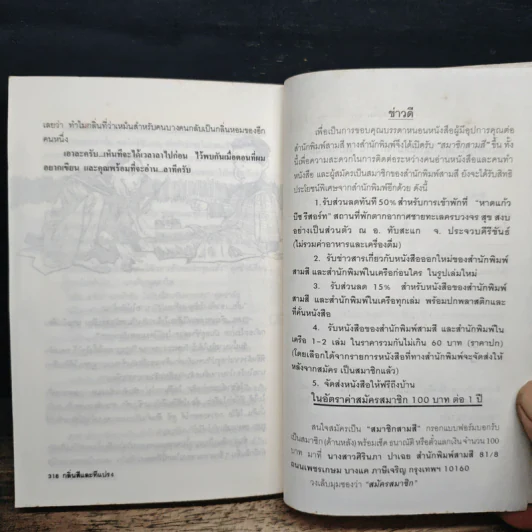 เลยว่า ทำไมกลิ่นที่ว่าเหม็นสำหรับคนบางคนกลับเป็นกลิ่นหอมของอีก
คนหนึ่ง
เอาละครับ...เห็นทีจะได้เวลาลาไปก่อน ไว้พบกันเมื่อตอนที่ผม
อยากเขียน และคุณพร้อมที่จะอ่าน...ลาทีครับ
318 กลิ่นสีและทีแปรง
ข่าวดี
เพื่อเป็นการขอบคุณบรรดาหนอนหนังสือผู้มีอุปการคุณต่อ
สำนักพิมพ์สามสี ทางสำนักพิมพ์จึงได้เปิดรับ "สมาชิกสามสี" ขึ้น ทั้ง
นี้เพื่อความสะดวกในการติดต่อระหว่างคนอ่านหนังสือและคนทำ
หนังสือ และผู้สมัครเป็นสมาชิกของสำนักพิมพ์สามสี ยังจะได้รับสิทธิ
ประโยชน์พิเศษจากสำนักพิมพ์อีกด้วย ดังนี้
1. รับส่วนลดทันที 50% สำหรับการเข้าพักที่ "หาดแก้ว
บีช รีสอร์ท" สถานที่พักตากอากาศชายทะเลครบวงจร สุข สงบ
อย่างเป็นส่วนตัว ณ อ. ทับสะแก จ. ประจวบคีรีขันธ์
(ไม่รวมค่าอาหารและเครื่องดื่ม)
2. รับข่าวสารเกี่ยวกับหนังสือออกใหม่ของสำนักพิมพ์
สามสี และสำนักพิมพ์ในเครือก่อนใคร ในรูปเล่มใหม่
3. รับส่วนลด 15% สำหรับหนังสือของสำนักพิมพ์
สามสี และสำนักพิมพ์ในเครือทุกเล่ม พร้อมปกพลาสติกและ
ที่คั่นหนังสือ
4. รับหนังสือของสำนักพิมพ์สามสี และสำนักพิมพ์ใน
เครือ 1-2 เล่ม ในราคารวมกันไม่เกิน 60 บาท (ราคาปก)
(โดยเลือกได้จากรายการหนังสือที่ทางสำนักพิมพ์จะจัดส่งให้
หลังจากสมัคร เป็นสมาชิกแล้ว)
5. จัดส่งหนังสือให้ฟรีถึงบ้าน
ในอัตราค่าสมัครสมาชิก 100 บาท ต่อ 1 ปี
สนใจสมัครเป็น "สมาชิกสามสี" กรอกแบบฟอร์มบอกรับ
เป็นสมาชิก (ด้านหลัง) พร้อมเช็ค ธนาณัติ หรือตั๋วแลกเงิน จำนวน 100
บาท มาที่ นางสาวศิรินภา ปาเฉย สำนักพิมพ์สามสี 81/8
ถนนเพชรเกษม บางแค ภาษีเจริญ กรุงเทพฯ 10160
วงเล็บมุมซองว่า "สมัครสมาชิก"